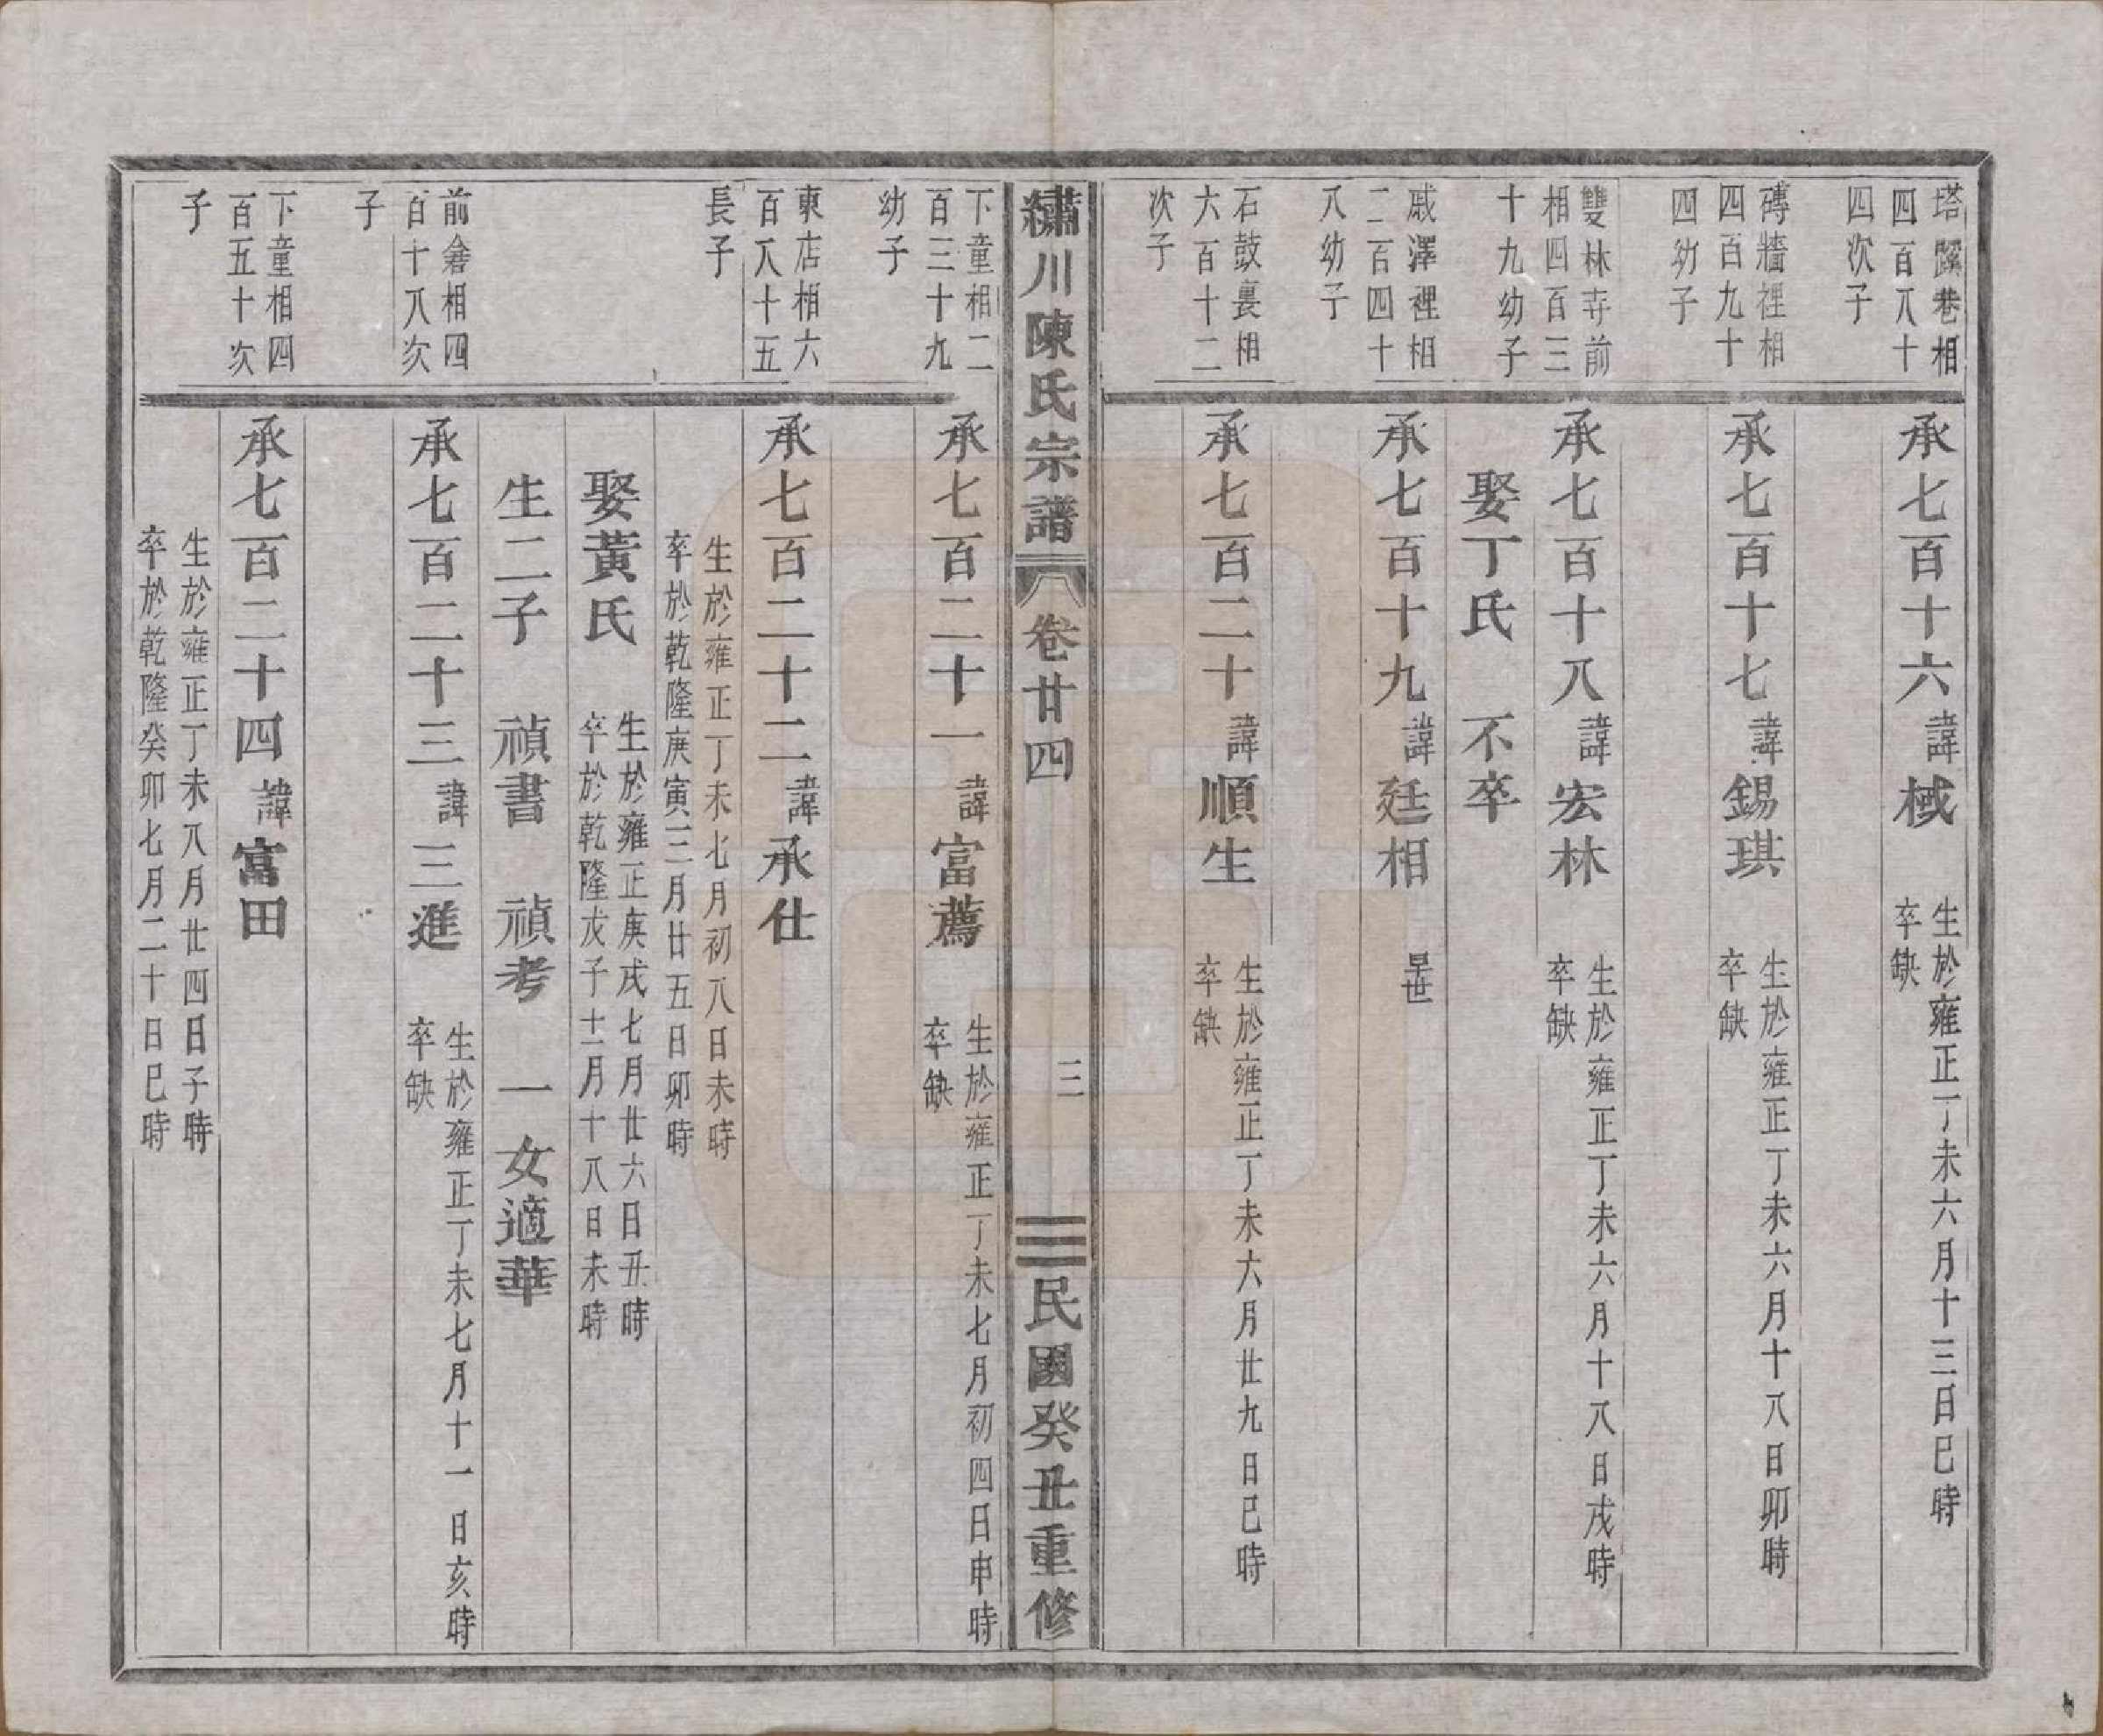 塔蹊巷相
四百八十
四次子
承七百十六 諱 棫
生於雍正丁未六月十三日巳時
卒缺
磚牆裡相
四百九十
四幼子
承七百十七 諱 錫琪
生於雍正丁未六月十八日卯時
卒缺
雙林寺前
相四百三
十九幼子
承七百十八 諱 宏林
生於雍正丁未六月十八日戌時
卒缺
娶丁氏 不卒
戚澤裡相
二百四十
八幼子
承七百十九 諱 廷相 早世
石鼓裏相
六百十二
次子
承七百二十 諱 順生
生於雍正丁未六月廿九日巳時
卒缺
繡川陳氏宗譜 卷廿四 三 民國癸丑重修
下童相二
百三十九
幼子
承七百二十一 諱 富薦
生於雍正丁未七月初四日申時
卒缺
東店相六
百八十五
長子
承七百二十二 諱 承仕
生於雍正丁未七月初八日未時
卒於乾隆庚寅三月廿五日卯時
娶黃氏
生於雍正庚戌七月廿六日丑時
卒於乾隆戊子十二月十八日未時
生二子 禎書 禎考 一女適華
前畬相四
百十八次
子
承七百二十三 諱 三進
生於雍正丁未七月十一日亥時
卒缺
下童相四
百五十次
子
承七百二十四 諱 富田
生於雍正丁未八月廿四日子時
卒於乾隆癸卯七月二十日巳時